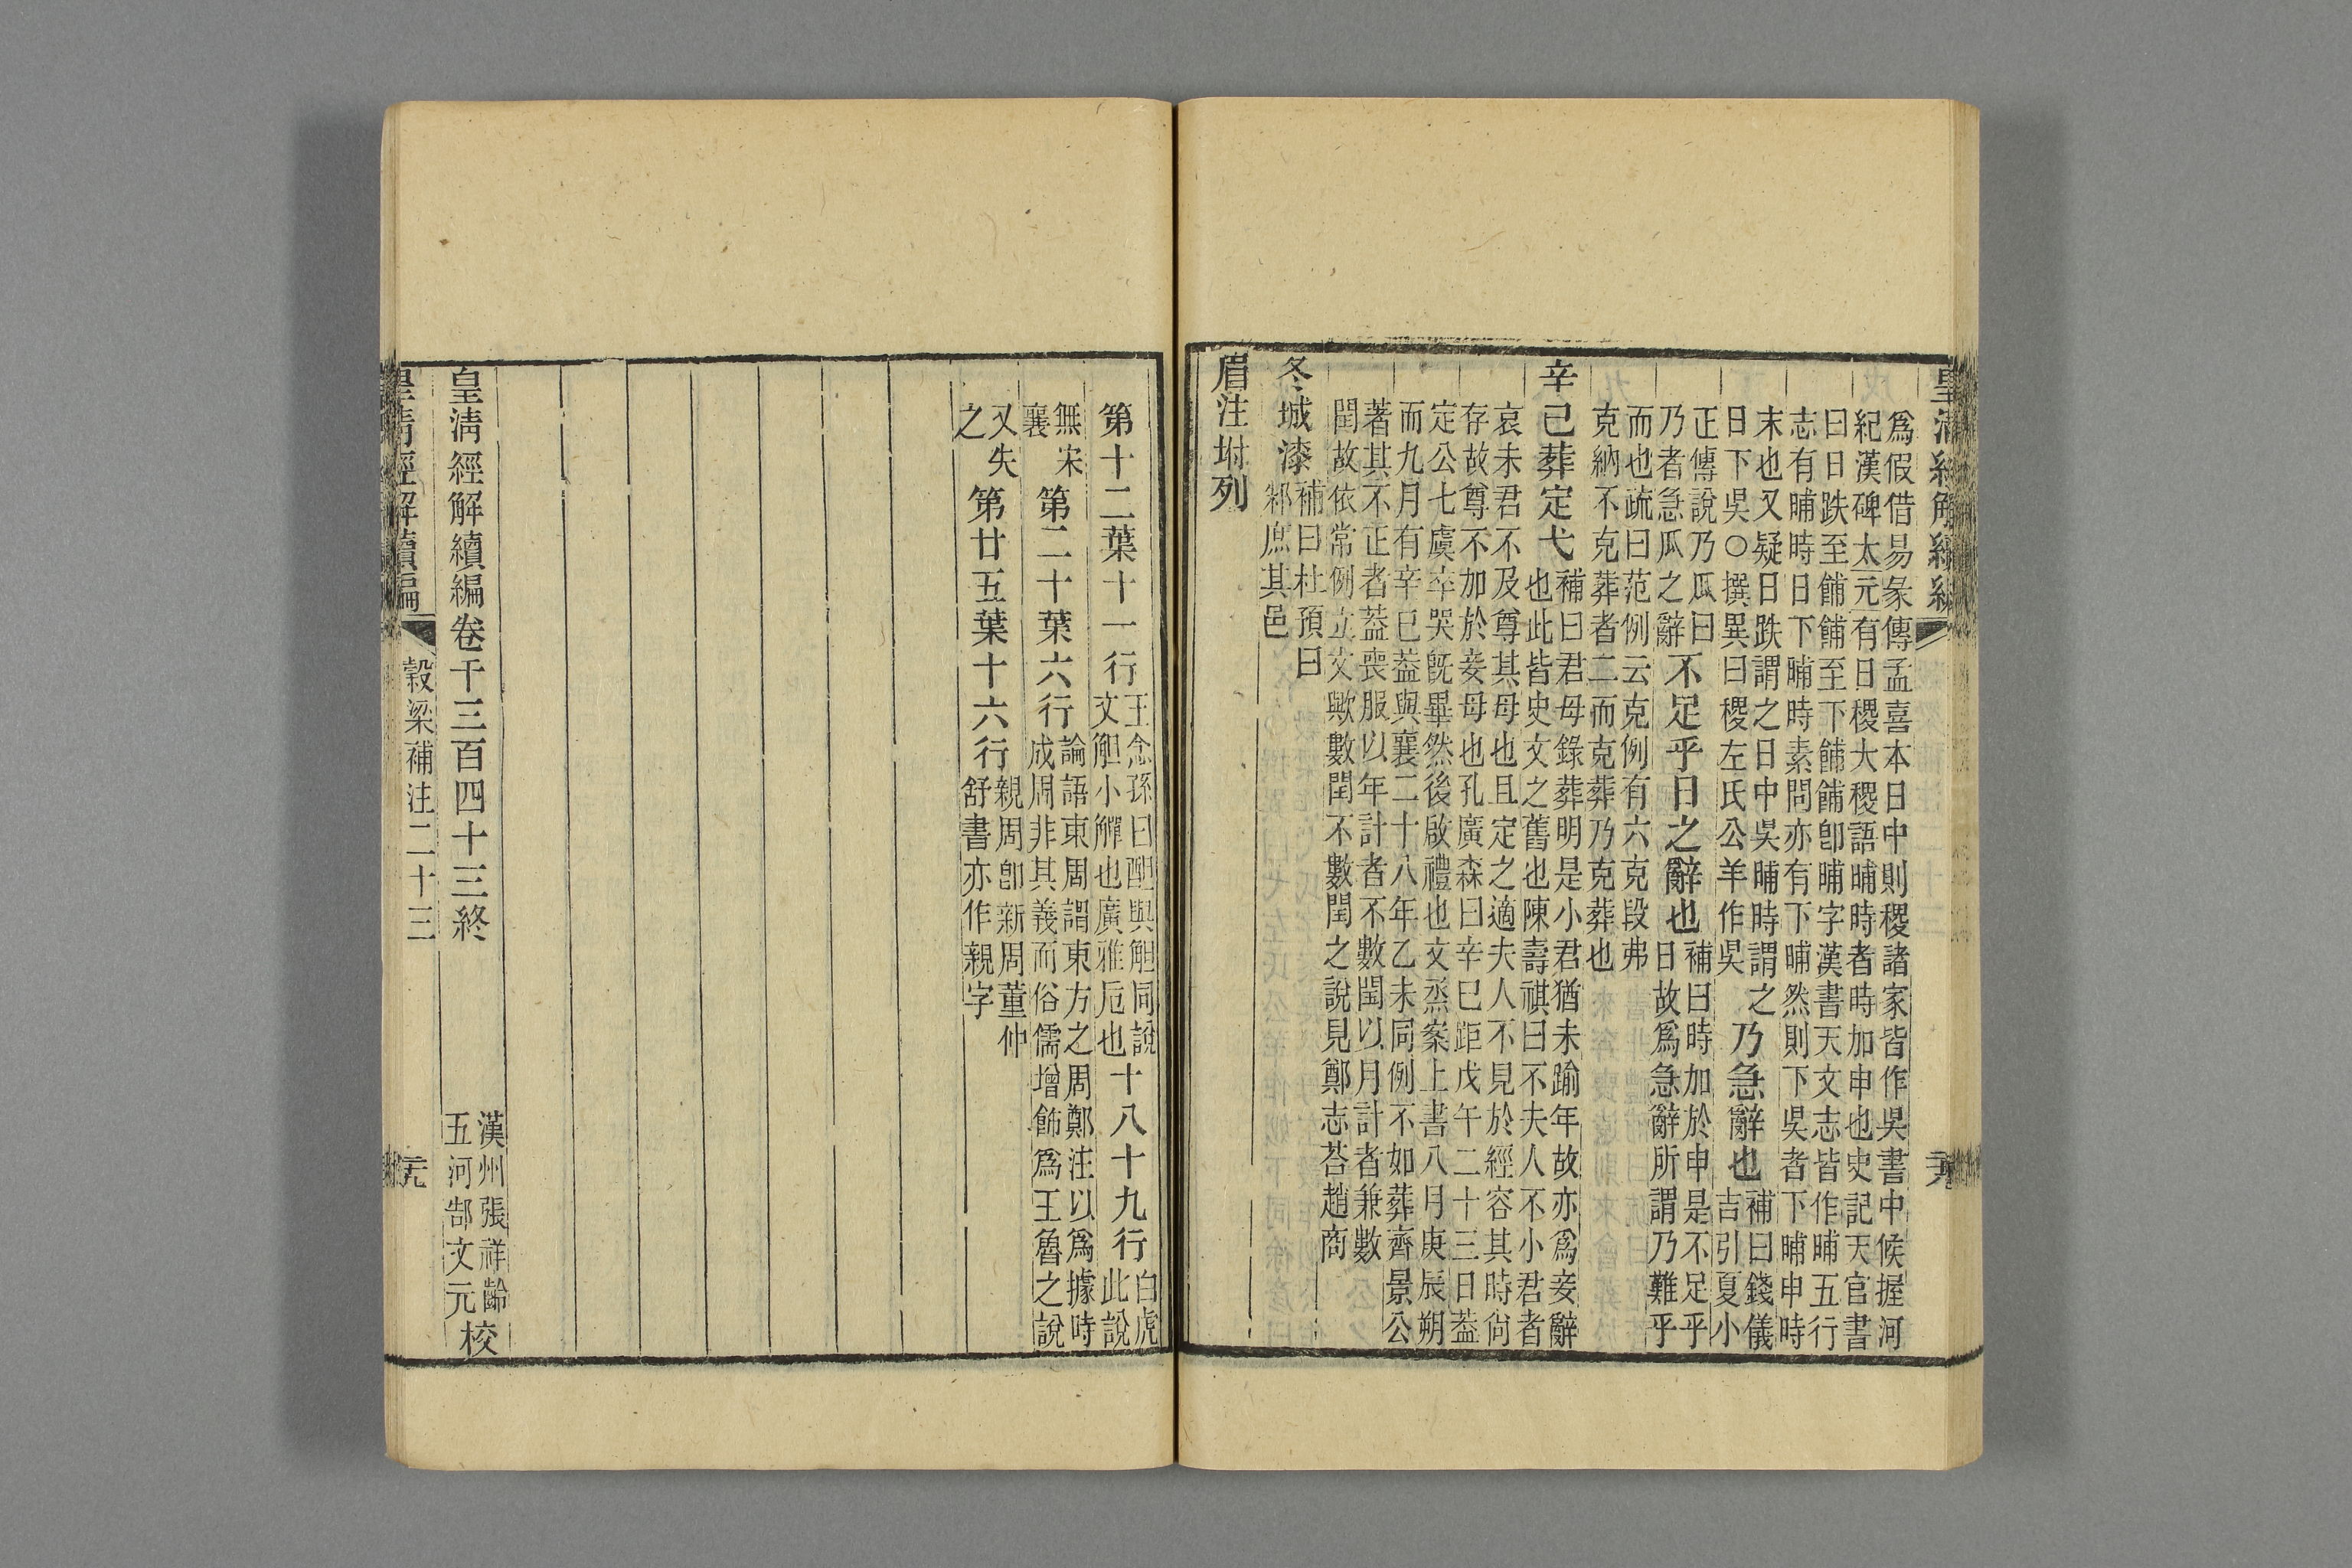 爲假借易彖傳孟喜本日中則稷諸家皆作吳書中候握河
紀漢碑太元有日稷大稷語晡時者時加申也史記天官書
曰日跌至餔餔至下餔餔卽晡字漢書天文志皆作晡五行
志有晡時日下晡時素問亦有下晡然則下吳者下晡申時
末也又疑日跌謂之日中吳晡時謂之
日下吳○撰異曰稷左氏公羊作吳
乃急辭也
補曰錢儀
吉引夏小
正傳說乃瓜曰
乃者急瓜之辭
不足乎日之辭也
補曰時加於申是不足乎
日故爲急辭所謂乃難乎
而也疏曰范例云克例有六克段弗
克納不克葬者二而克葬乃克葬也
辛巳葬定弋
補曰君母錄葬明是小君猶未踰年故亦爲妾辭
也此皆史文之舊也陳壽祺曰不夫人不小君者
哀未君不及尊其母也且定之適夫人不見於經容其時尙
存故尊不加於妾母也孔廣森曰辛巳距戊午二十三日葢
定公七虞卒哭旣畢然後啟禮也文烝案上書八月庚辰朔
而九月有辛巳葢與襄二十八年乙未同例不如葬齊景公
著其不正者葢喪服以年計者不數閏以月計者兼數
閏故依常例立文歟數閏不數閏之說見鄭志荅趙商
冬城漆
補曰杜預曰
邾庶其邑
眉注坿列
第十二葉十一行
王念孫曰䚘與觛同說
文觛小觶也廣雅卮也
十八十九行
白虎
此說
無宋
襄
第二十葉六行
論語東周謂東方之周鄭注以爲據時
成周非其義而俗儒增飾爲王魯之說
又失
之
第廿五葉十六行
親周卽新周董仲
舒書亦作親字
皇淸經解續編卷千三百四十三終
漢州張祥齡
五河郜文元
校
皇淸經解續編
穀梁補注二十三